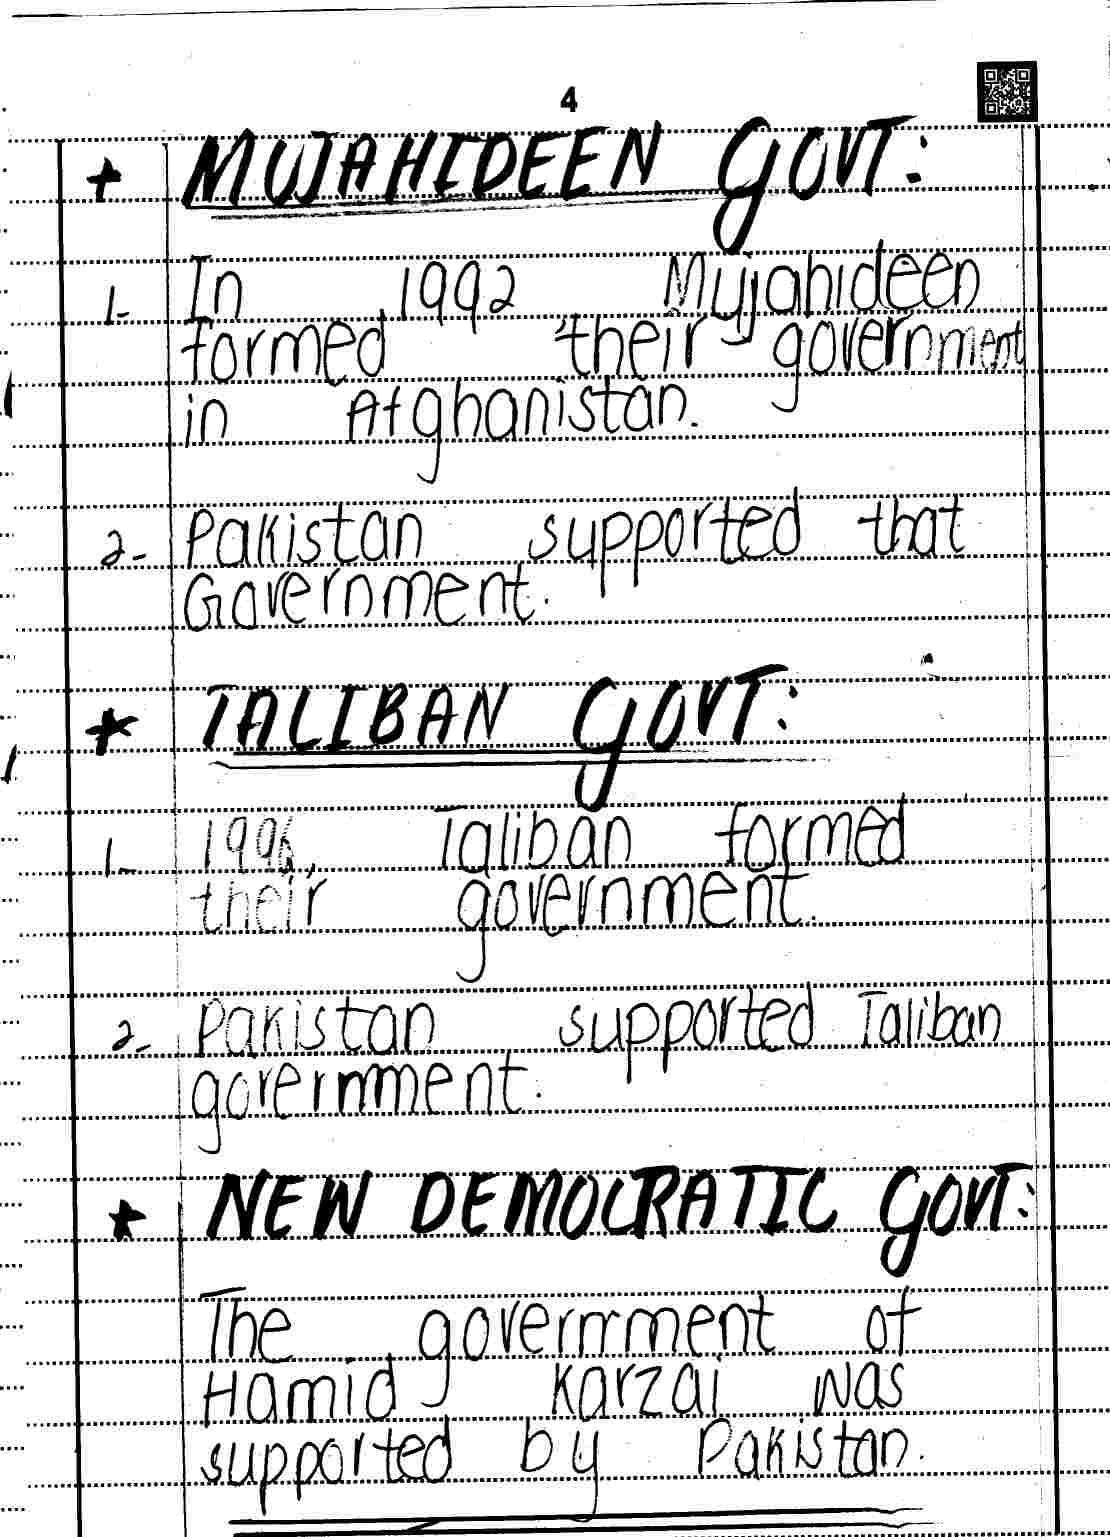 4
* MUJAHIDEEN GOVT:
1- In 1992 Mujahideen
formed their government
in Afghanistan.
2- Pakistan supported that
Government.
* TALIBAN GOVT:
1- 1996, Taliban formed
their government.
2- Pakistan supported Taliban
government.
* NEW DEMOCRATIC GOVT:
The government of
Hamid Karzai was
supported by Pakistan.